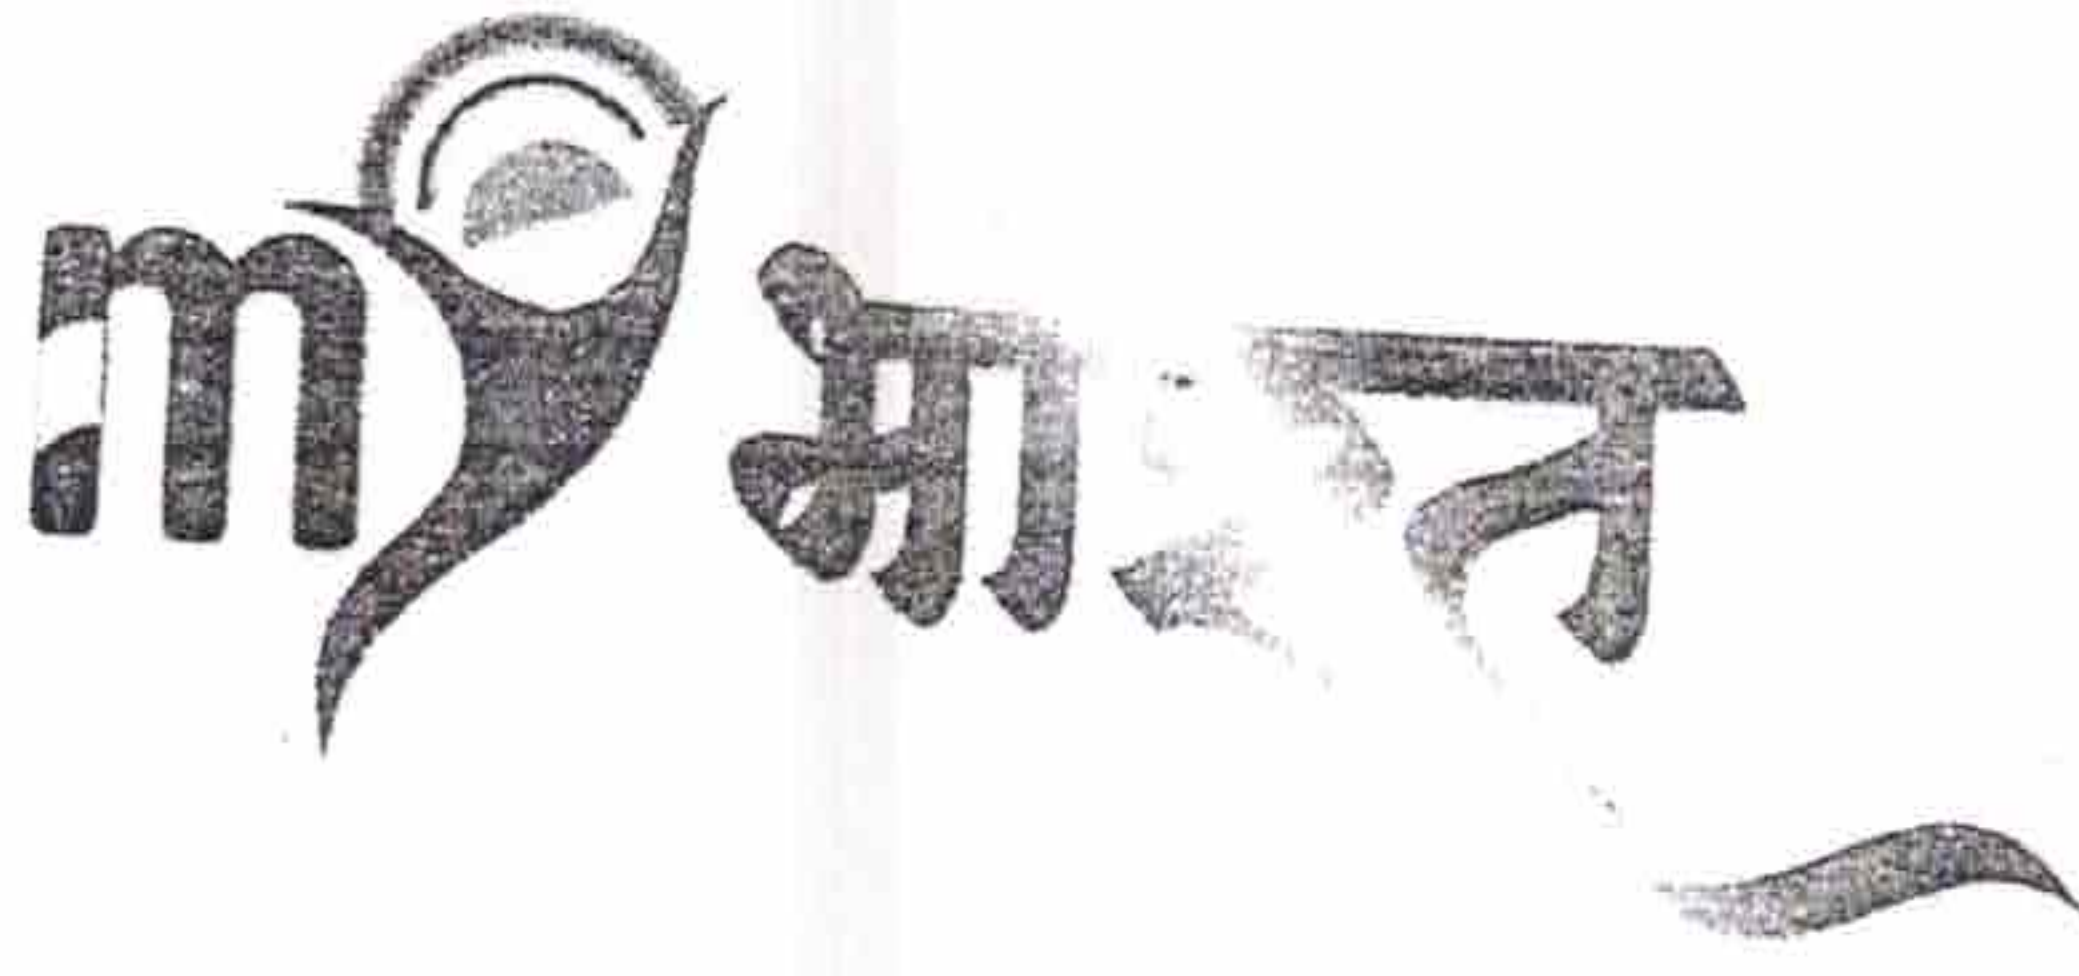 my भारत